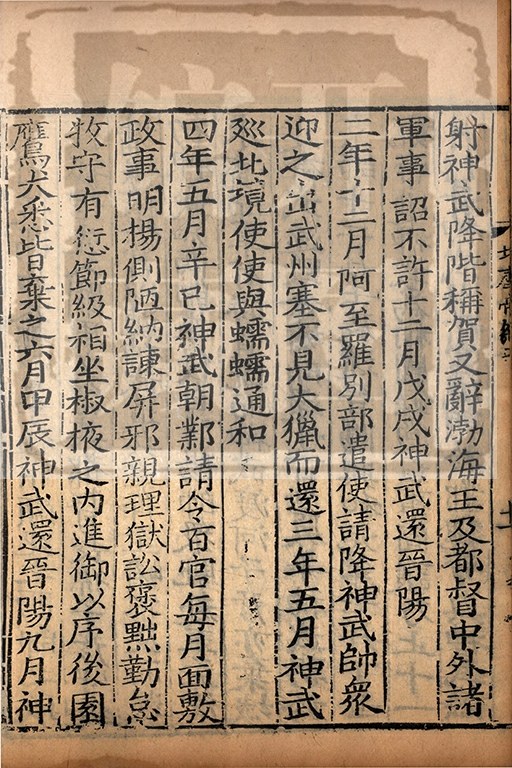 射神武降階稱賀又辭渤海王及都督中外諸
軍事詔不許十二月戊戌神武還晉陽
二年十二月阿至羅別部遣使請降神武帥衆
迎之出武州塞不見大獵而還三年五月神武
廵北境使使與蠕蠕通和
四年五月辛巳神武朝鄴請令百官每月面敷
政事明揚側陋納諫屏邪親理獄訟褒黜勤怠
牧守有愆節級相坐椒掖之內進御以序後園
鷹犬悉皆棄之六月甲辰神武還晉陽九月神